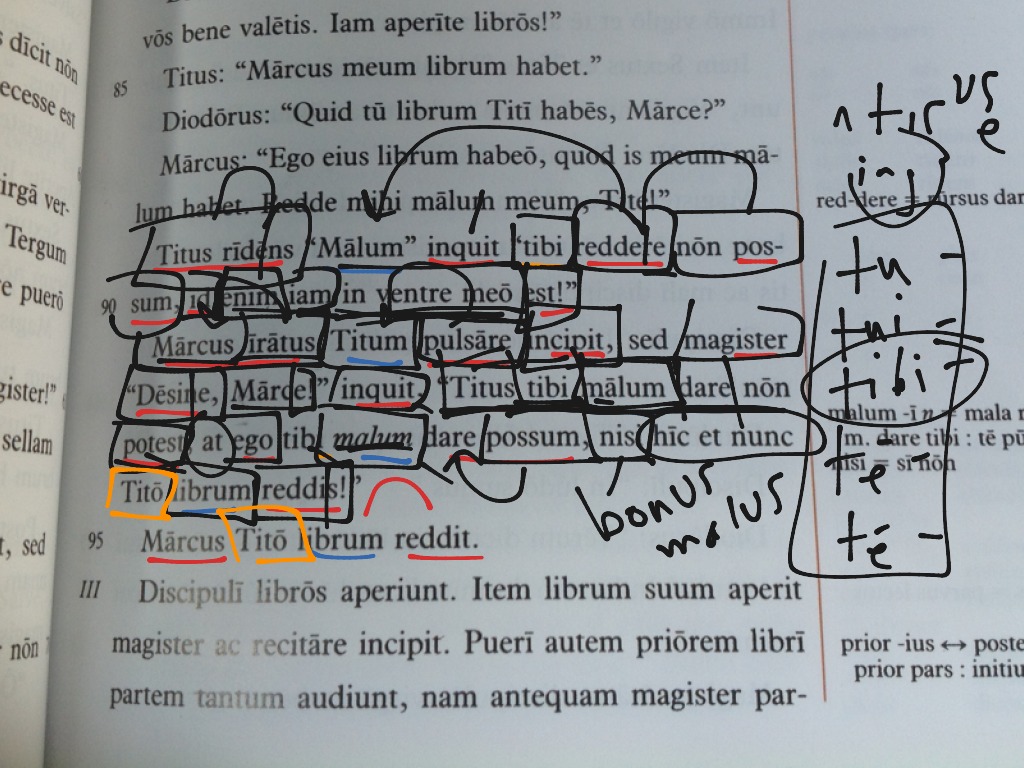 s dīcit nōn
ecesse est
irgā ver-
Tergum
e puerō
gister!"
sellam
t, sed
nōn
vōs bene valētis. Iam aperīte librōs!”
85 Titus: “Mārcus meum librum habet.”
Diodōrus: “Quid tū librum Titī habēs, Mārce?”
Mārcus: “Ego eius librum habeō, quod is meum mā-
lum habet. Redde mihi mālum meum, Tite!”
Titus rīdēns “Mālum” inquit “tibi reddere nōn pos-
90 sum, id enim iam in ventre meō est!”
Mārcus īrātus Titum pulsāre incipit, sed magister
“Dēsine, Mārce!” inquit, “Titus tibi mālum dare nōn
potest, at ego tibi malum dare possum, nisi hīc et nunc
Titō librum reddis!”
95 Mārcus Titō librum reddit.
III Discipulī librōs aperiunt. Item librum suum aperit
magister ac recitāre incipit. Puerī autem priōrem librī
partem tantum audiunt, nam antequam magister par-
red-dere = rūrsus dar
malum -ī n = mala r
m. dare tibi : tē pū
nisi = sī nōn
prior -ius ↔ poste
prior pars : initiu
us
e
tu
tui
tibi
tē
tē
bonus
ius